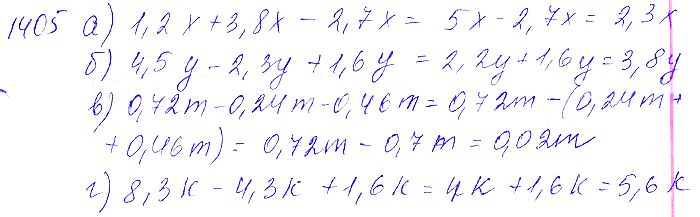 1405 а) 1,2х+3,8х - 2,7х = 5х - 2,7х = 2,3х
б) 4,5у - 2,3у + 1,6у = 2,2у + 1,6у = 3,8у
в) 0,72m - 0,24m - 0,46m = 0,72m - (0,24m +
+ 0,46m) = 0,72m - 0,7m = 0,02m
г) 8,3к - 4,3к + 1,6к = 4к + 1,6к = 5,6к